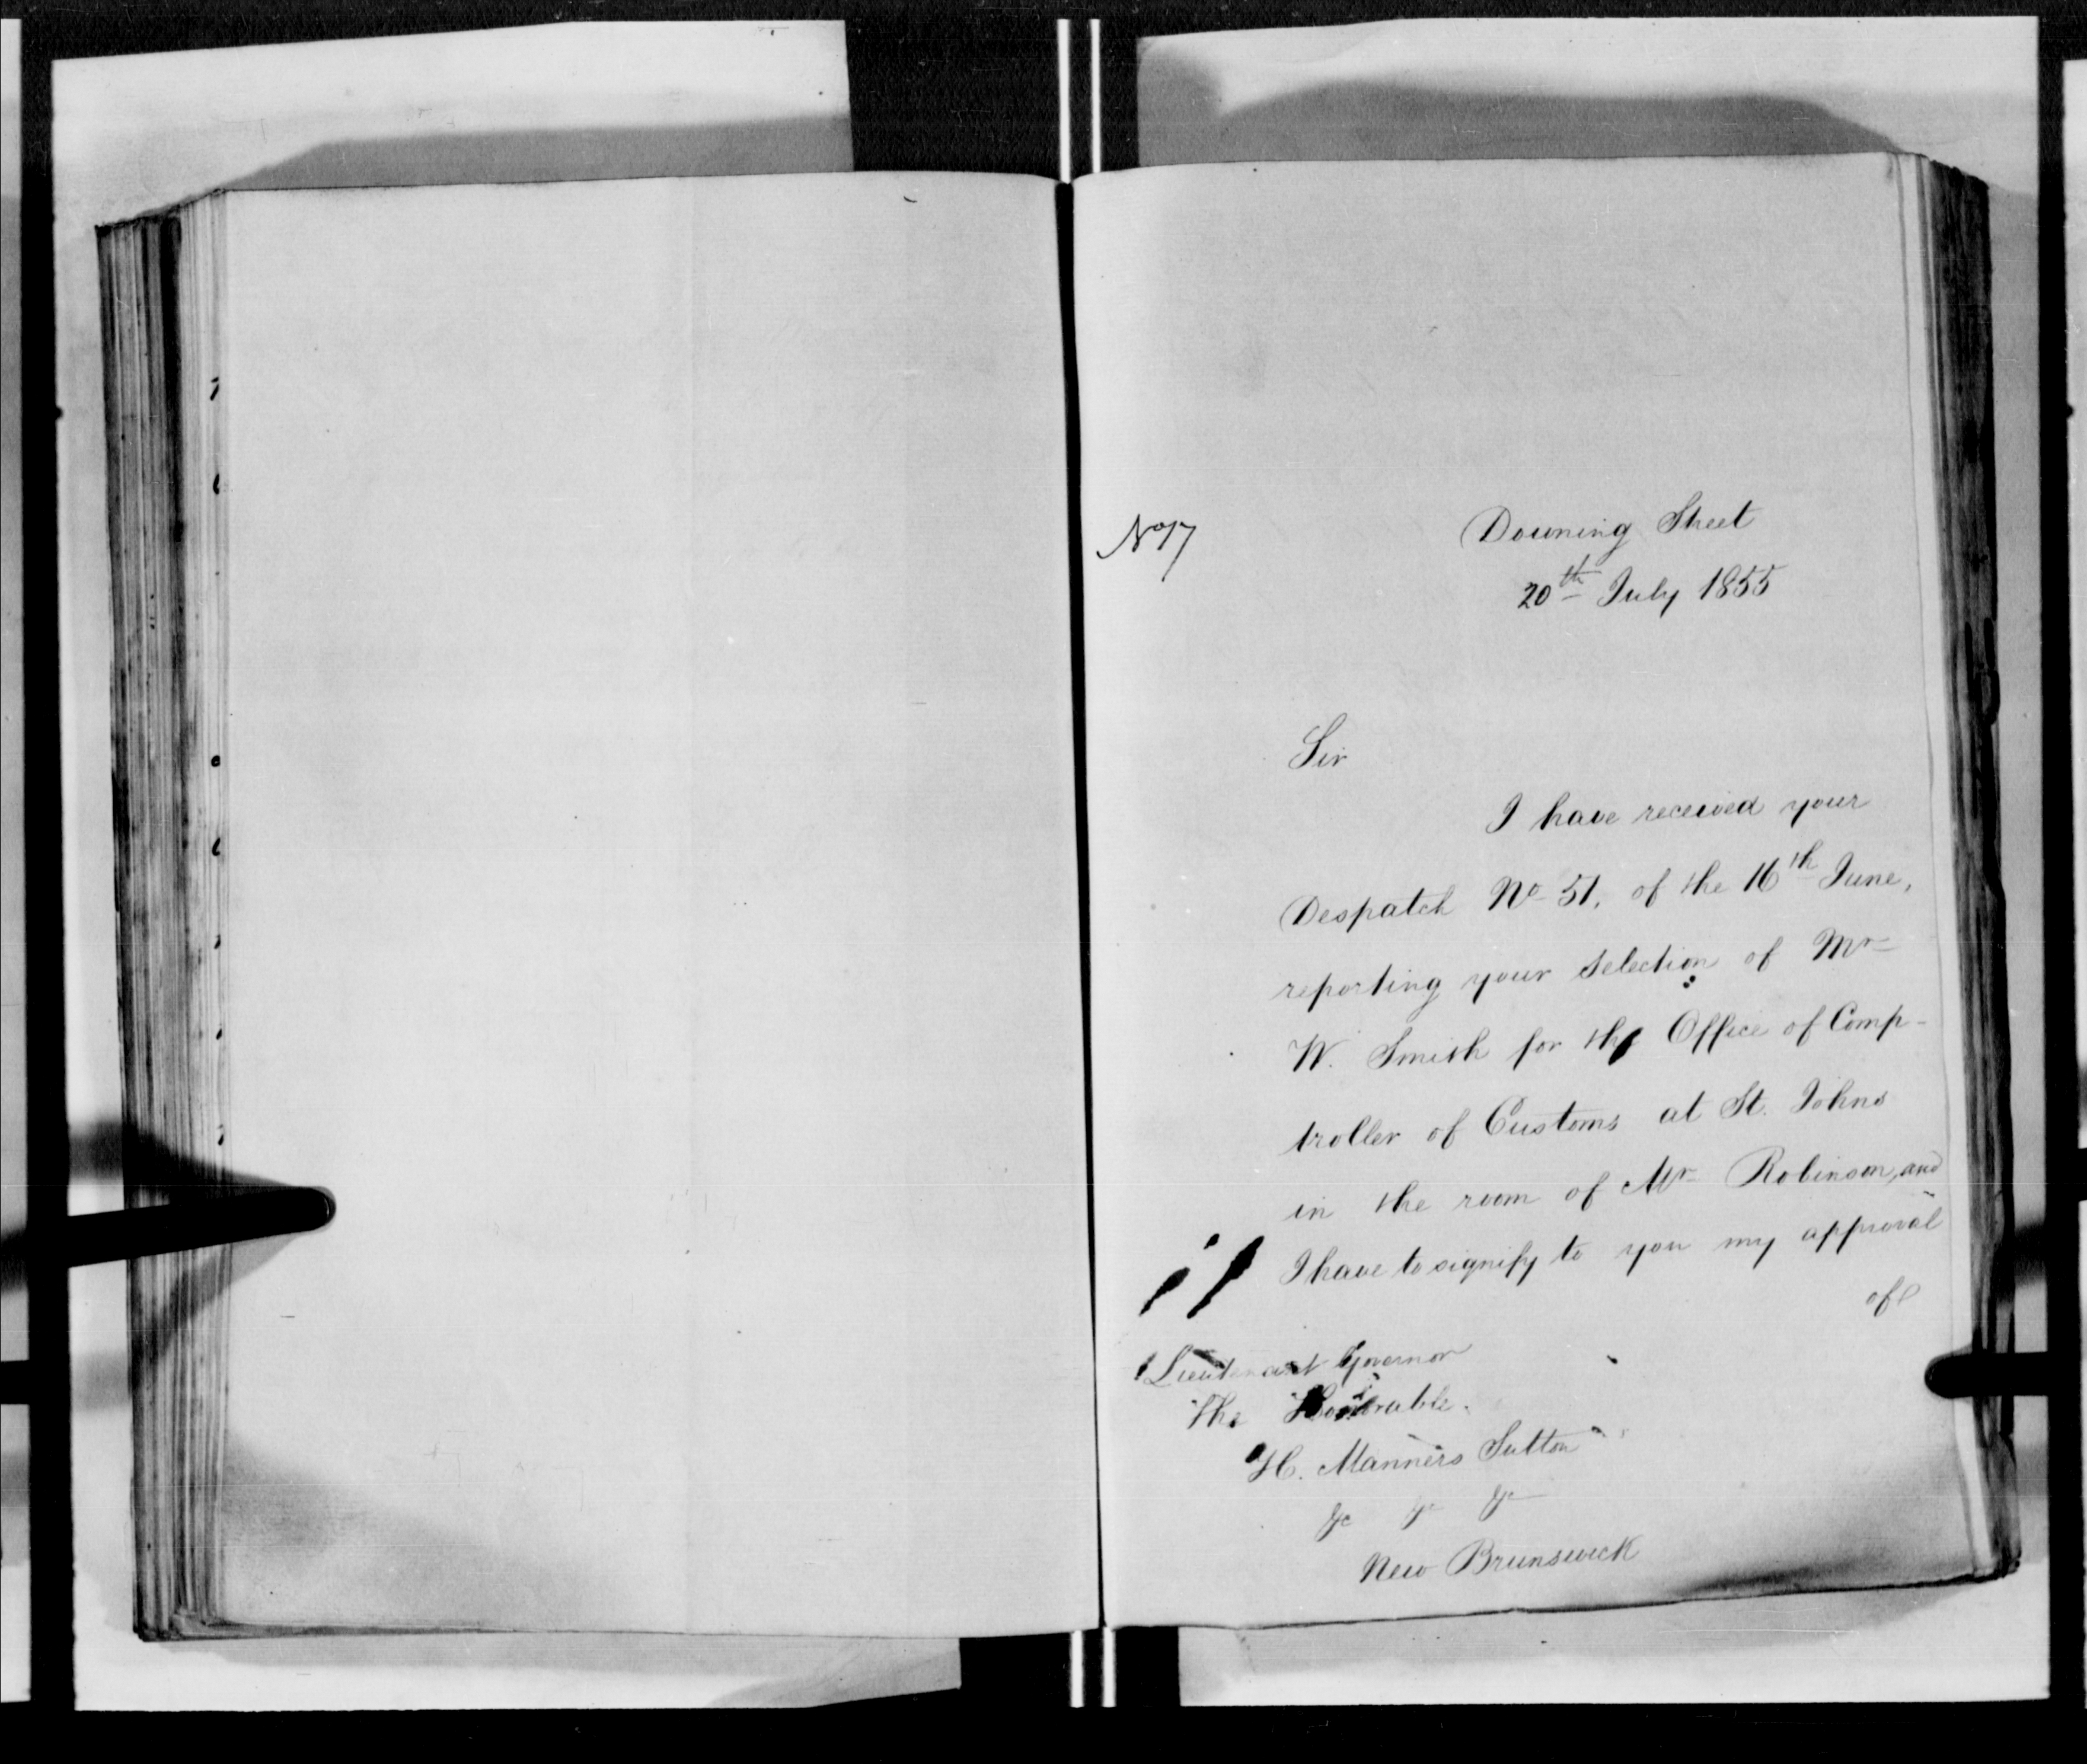 No 17
Downing Street
20th July 1855
Sir
I have received your
Despatch No 51, of the 16th June,
reporting your selection of Mr
W. Smith for the Office of Comp-
troller of Customs at St. Johns
in the room of Mr Robinson, and
I have to signify to you my approval
of
Lieutenant Governor
The Honorable
H. Manners Sutton
&c &c &c
New Brunswick